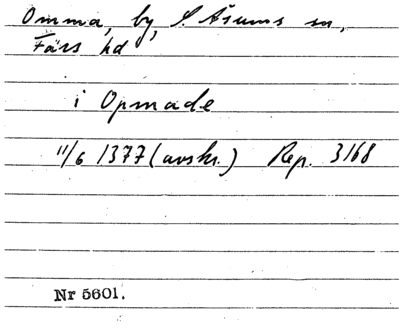 Omma, by, S. Åsums sn,
Färs hd
i Opmade
11/6 1377 (avskr.) Rep. 3168
Nr 5601.